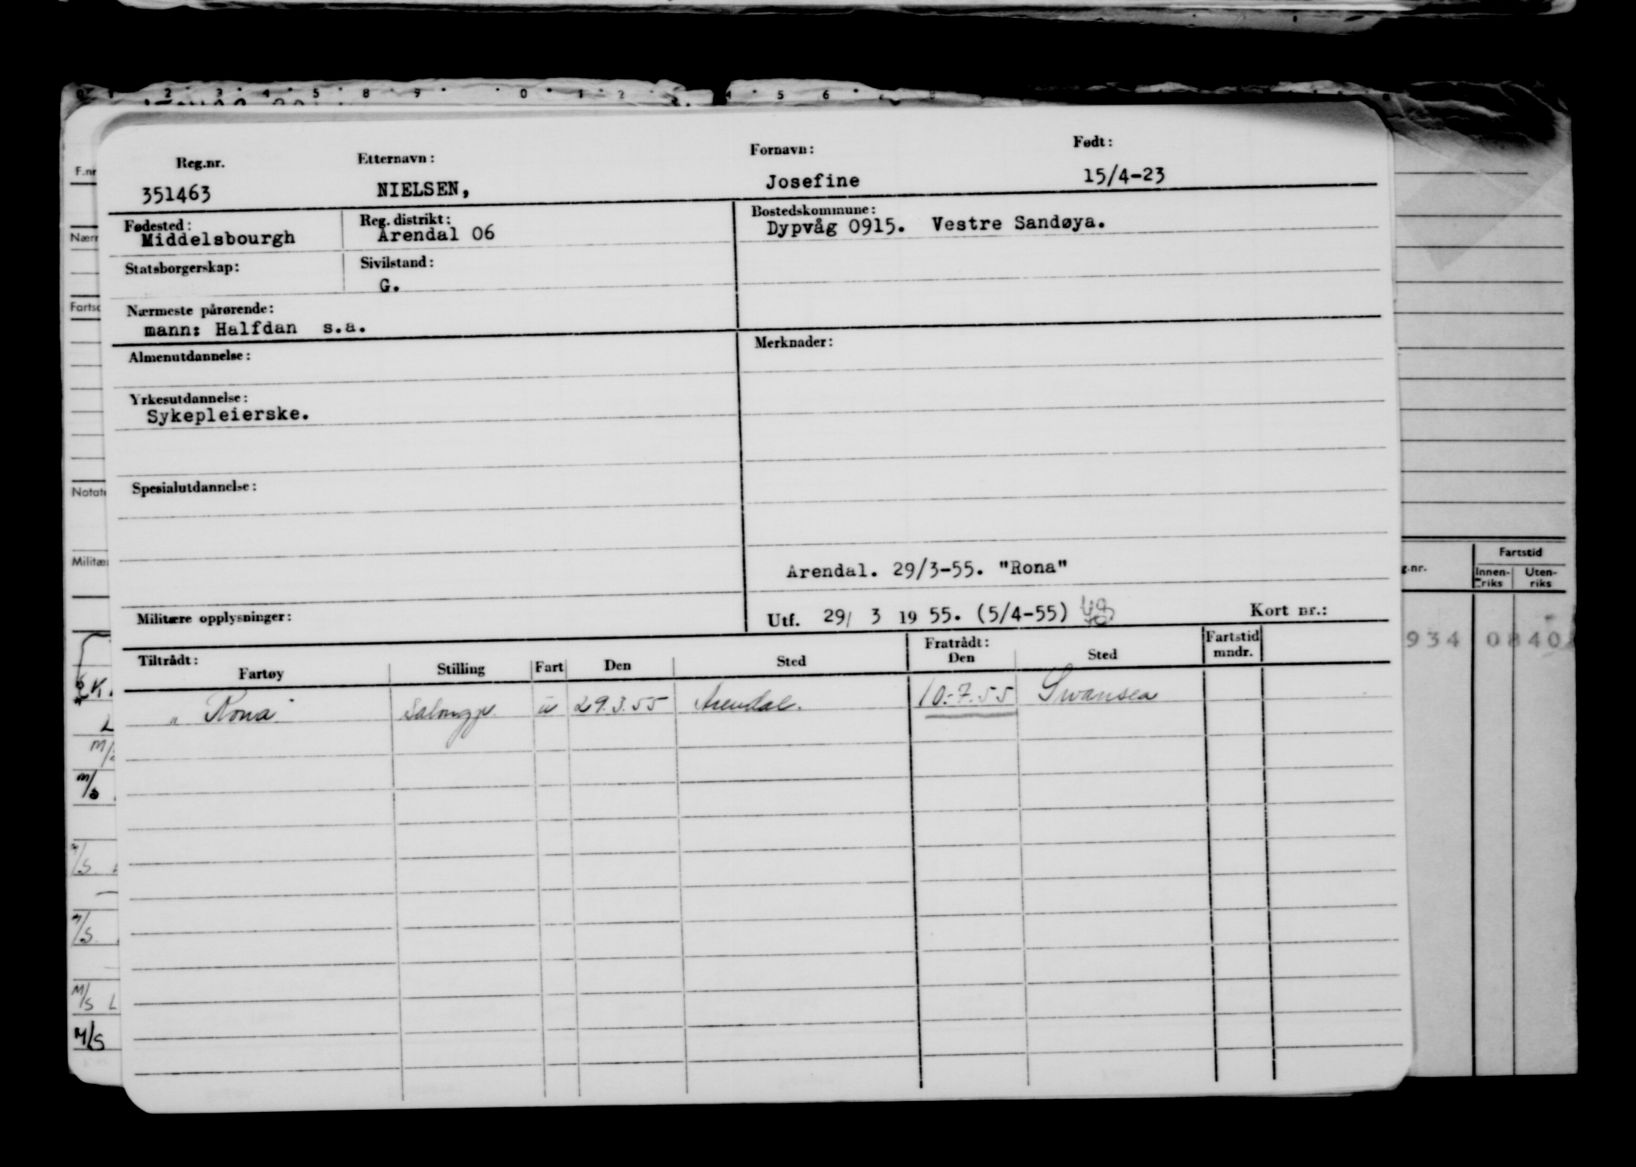 0 1 2 3 4 5 8 9 0 1 2 4 5 6
F.nr
Reg.nr. Etternavn: Fornavn: Født:
351463 NIELSEN, Josefine 15/4-23
Fødested: Reg. distrikt: Bostedskommune:
Middelsbourgh Arendal 06 Dypvåg 0915. Vestre Sandøya.
Statsborgerskap: Sivilstand:
G.
Nærmeste pårørende:
mann: Halfdan s.a.
Almenutdannelse: Merknader:
Yrkesutdannelse:
Sykepleierske.
Spesialutdannelse:
Arendal. 29/3-55. "Rona"
Militære opplysninger: Utf. 29/ 3 19 55. (5/4-55) Kort nr.:
Tiltrådt: Fratrådt: Fartstid
Fartøy Stilling Fart Den Sted Den Sted mndr.
" Rona" Salongp. u 29.3.55 Arendal. 10.-7.55 Swansea
Nærm
Fartso
Notate
Militæ
g.nr. Fartstid
Innen-riks Uten-riks
934 0840
M/S
M/S L
M/S